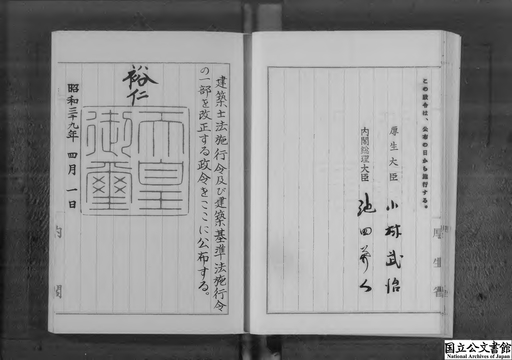 この政令は、公布の日から施行する。
厚生大臣 小林武治
内閣総理大臣 池田勇人
建築士法施行令及び建築基準法施行令
の一部を改正する政令をここに公布する。
裕仁
天皇
御璽
昭和三十九年四月一日
国立公文書館
National Archives of Japan